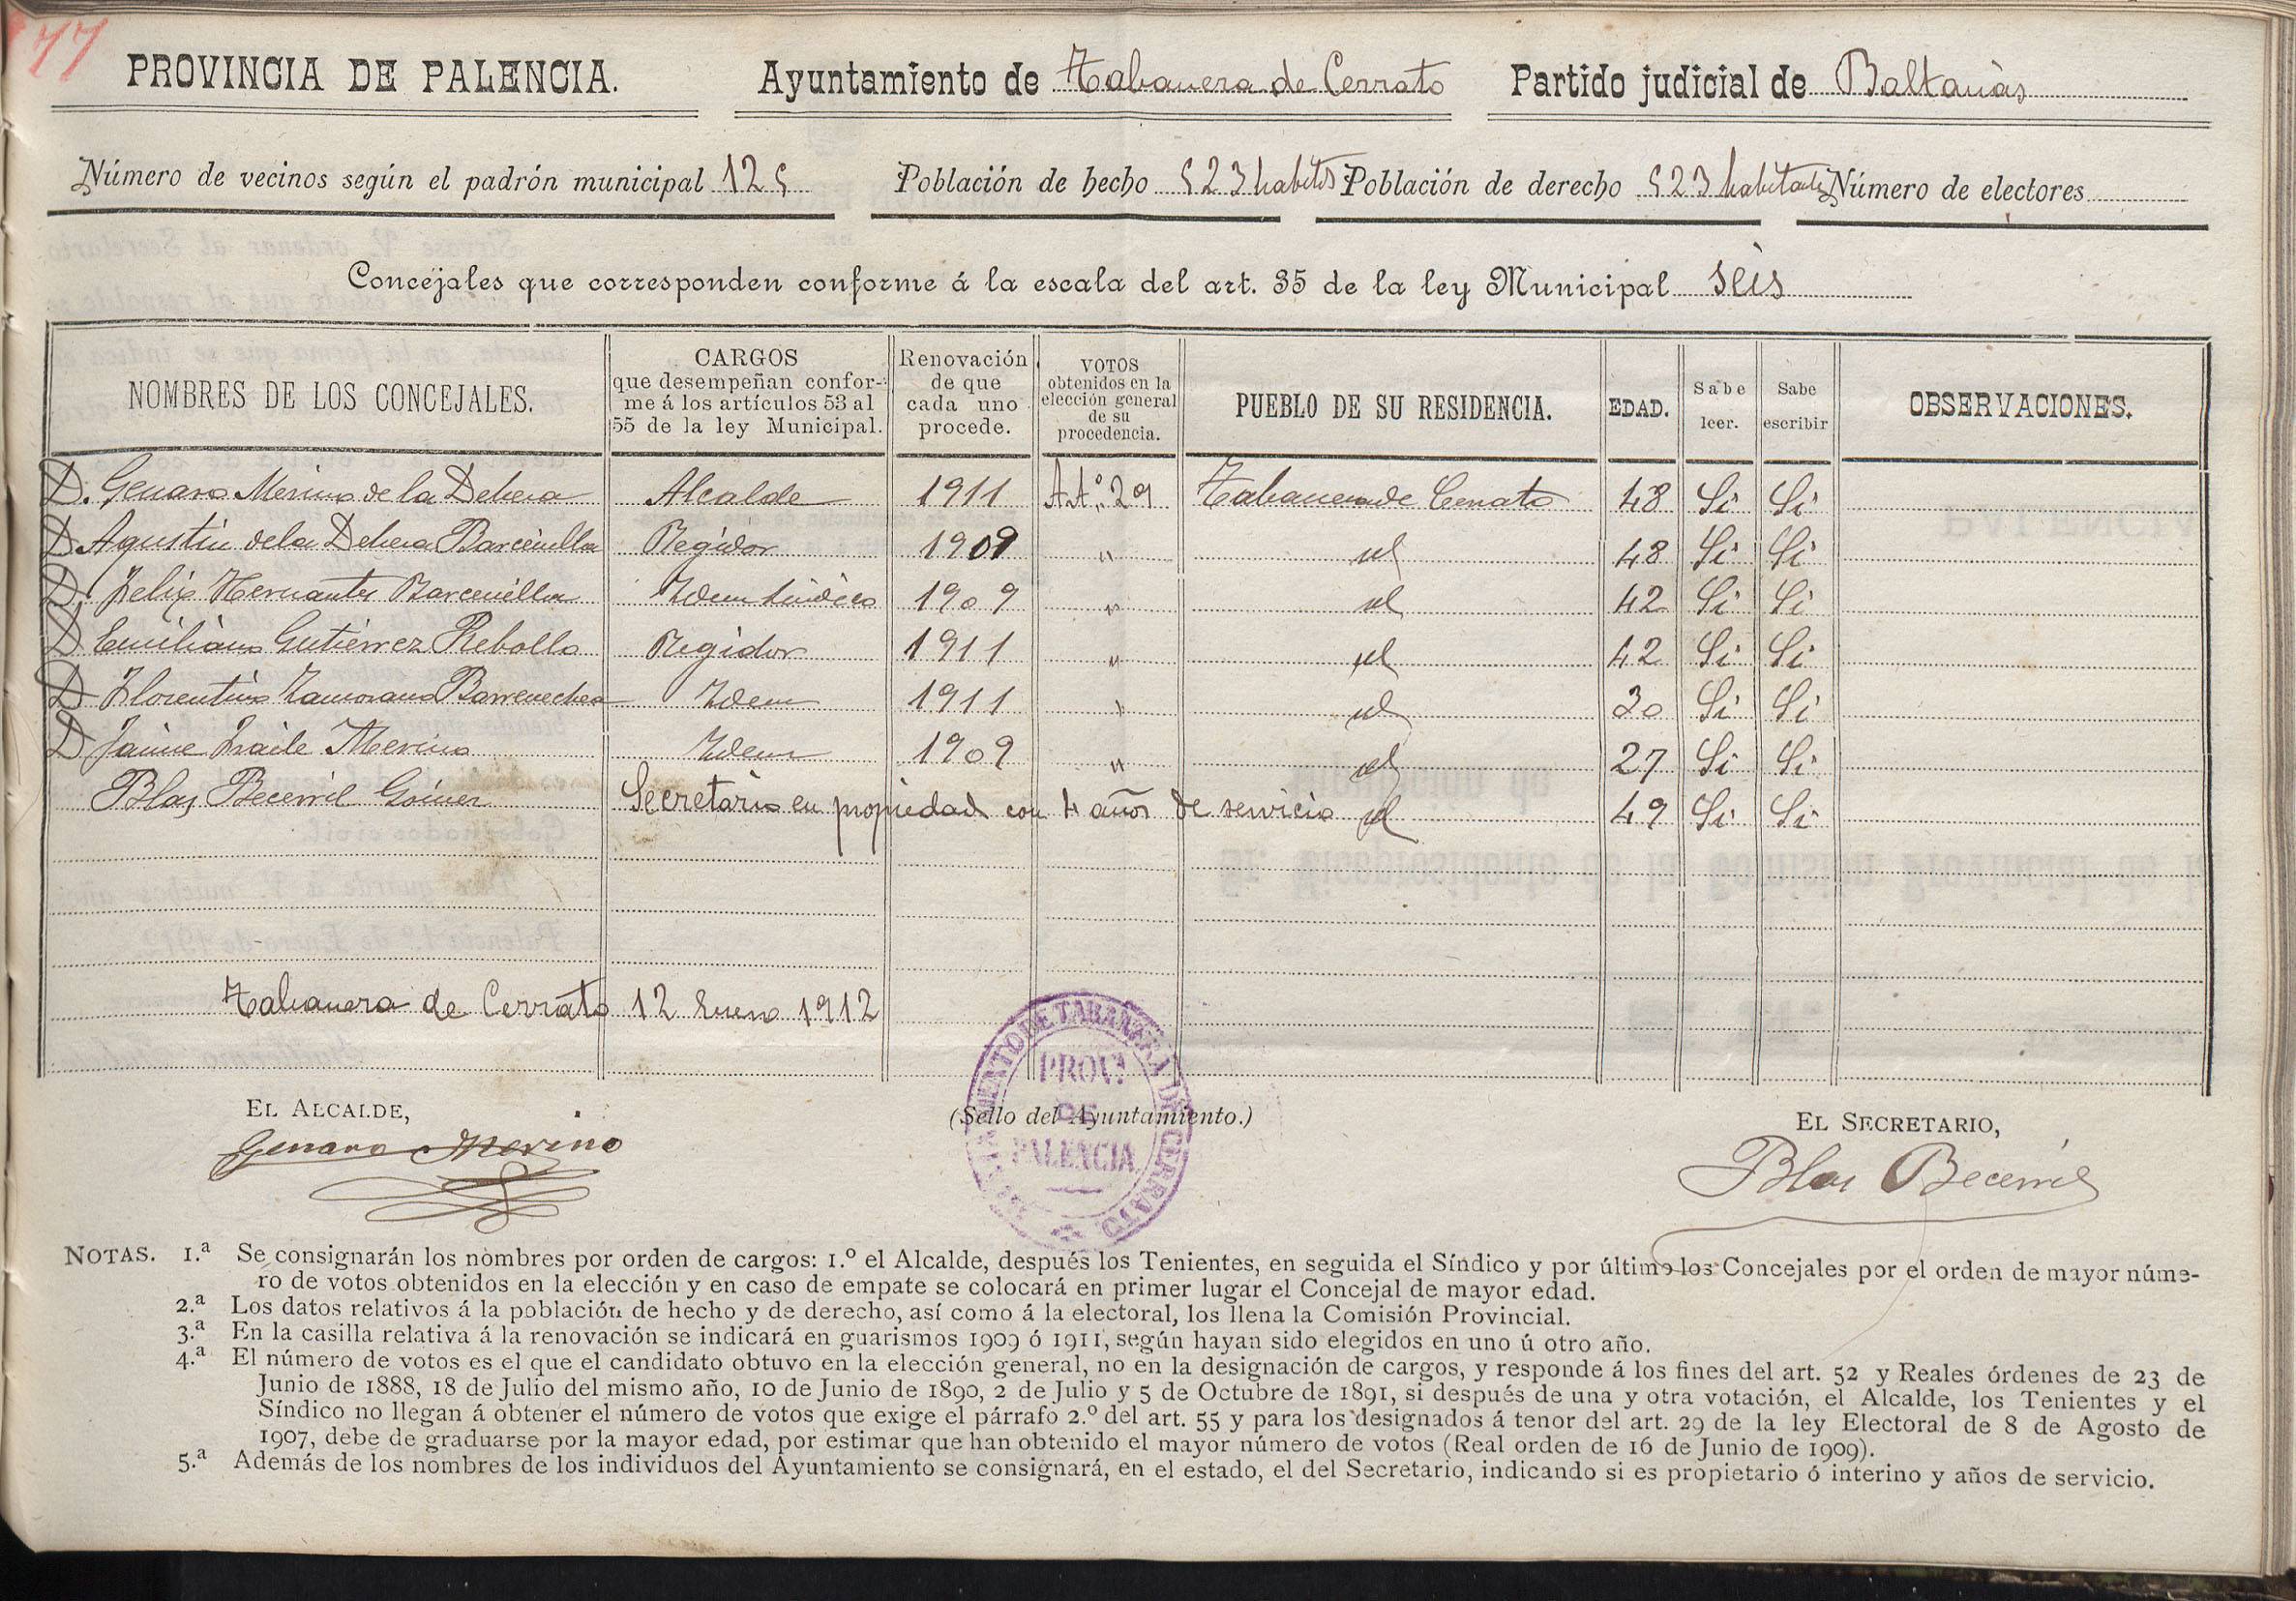 77
PROVINCIA DE PALENCIA. Ayuntamiento de Tabanera de Cerrato Partido judicial de Baltanás
Número de vecinos según el padrón municipal 125 Población de hecho 523 habites Población de derecho 523 habitantes Número de electores
Concejales que corresponden conforme á la escala del art. 35 de la ley Municipal seis
NOMBRES DE LOS CONCEJALES. CARGOS que desempeñan conforme á los artículos 53 al 55 de la ley Municipal. Renovación de que cada uno procede. VOTOS obtenidos en la elección general de su procedencia. PUEBLO DE SU RESIDENCIA. EDAD. Sabe leer. Sabe escribir OBSERVACIONES.
D. Genaro Merino de la Dehesa Alcalde 1911 Art.º 29 Tabanera de Cerrato 48 Si Si
D. Agustin de la Dehesa Barcenilla Regidor 1909 " id 48 Si Si
D. Felix Hernantes Barcenilla Idem Sindico 1909 " id 42 Si Si
D. Emiliano Gutiérrez Rebollo Regidor 1911 " id 42 Si Si
D. Florentino Zamorano Barrenechea Idem 1911 " id 30 Si Si
D. Jaime Fraile Merino Idem 1909 " id 27 Si Si
Blas Becerril Secretario en propiedad con 4 años de servicio id 49 Si Si
Tabanera de Cerrato 12 Enero 1912
AYUNTAMIENTO DE TABANERA DE CERRATO
PROV.ª
DE
PALENCIA
EL ALCALDE, (Sello del Ayuntamiento.) EL SECRETARIO,
Genaro Merino Blas Becerril
NOTAS. 1.ª Se consignarán los nombres por orden de cargos: 1.º el Alcalde, después los Tenientes, en seguida el Síndico y por último los Concejales por el orden de mayor núme-
ro de votos obtenidos en la elección y en caso de empate se colocará en primer lugar el Concejal de mayor edad.
2.ª Los datos relativos á la población de hecho y de derecho, así como á la electoral, los llena la Comisión Provincial.
3.ª En la casilla relativa á la renovación se indicará en guarismos 1909 ó 1911, según hayan sido elegidos en uno ú otro año.
4.ª El número de votos es el que el candidato obtuvo en la elección general, no en la designación de cargos, y responde á los fines del art. 52 y Reales órdenes de 23 de
Junio de 1888, 18 de Julio del mismo año, 10 de Junio de 1890, 2 de Julio y 5 de Octubre de 1891, si después de una y otra votación, el Alcalde, los Tenientes y el
Síndico no llegan á obtener el número de votos que exige el párrafo 2.º del art. 55 y para los designados á tenor del art. 29 de la ley Electoral de 8 de Agosto de
1907, debe de graduarse por la mayor edad, por estimar que han obtenido el mayor número de votos (Real orden de 16 de Junio de 1909).
5.ª Además de los nombres de los individuos del Ayuntamiento se consignará, en el estado, el del Secretario, indicando si es propietario ó interino y años de servicio.